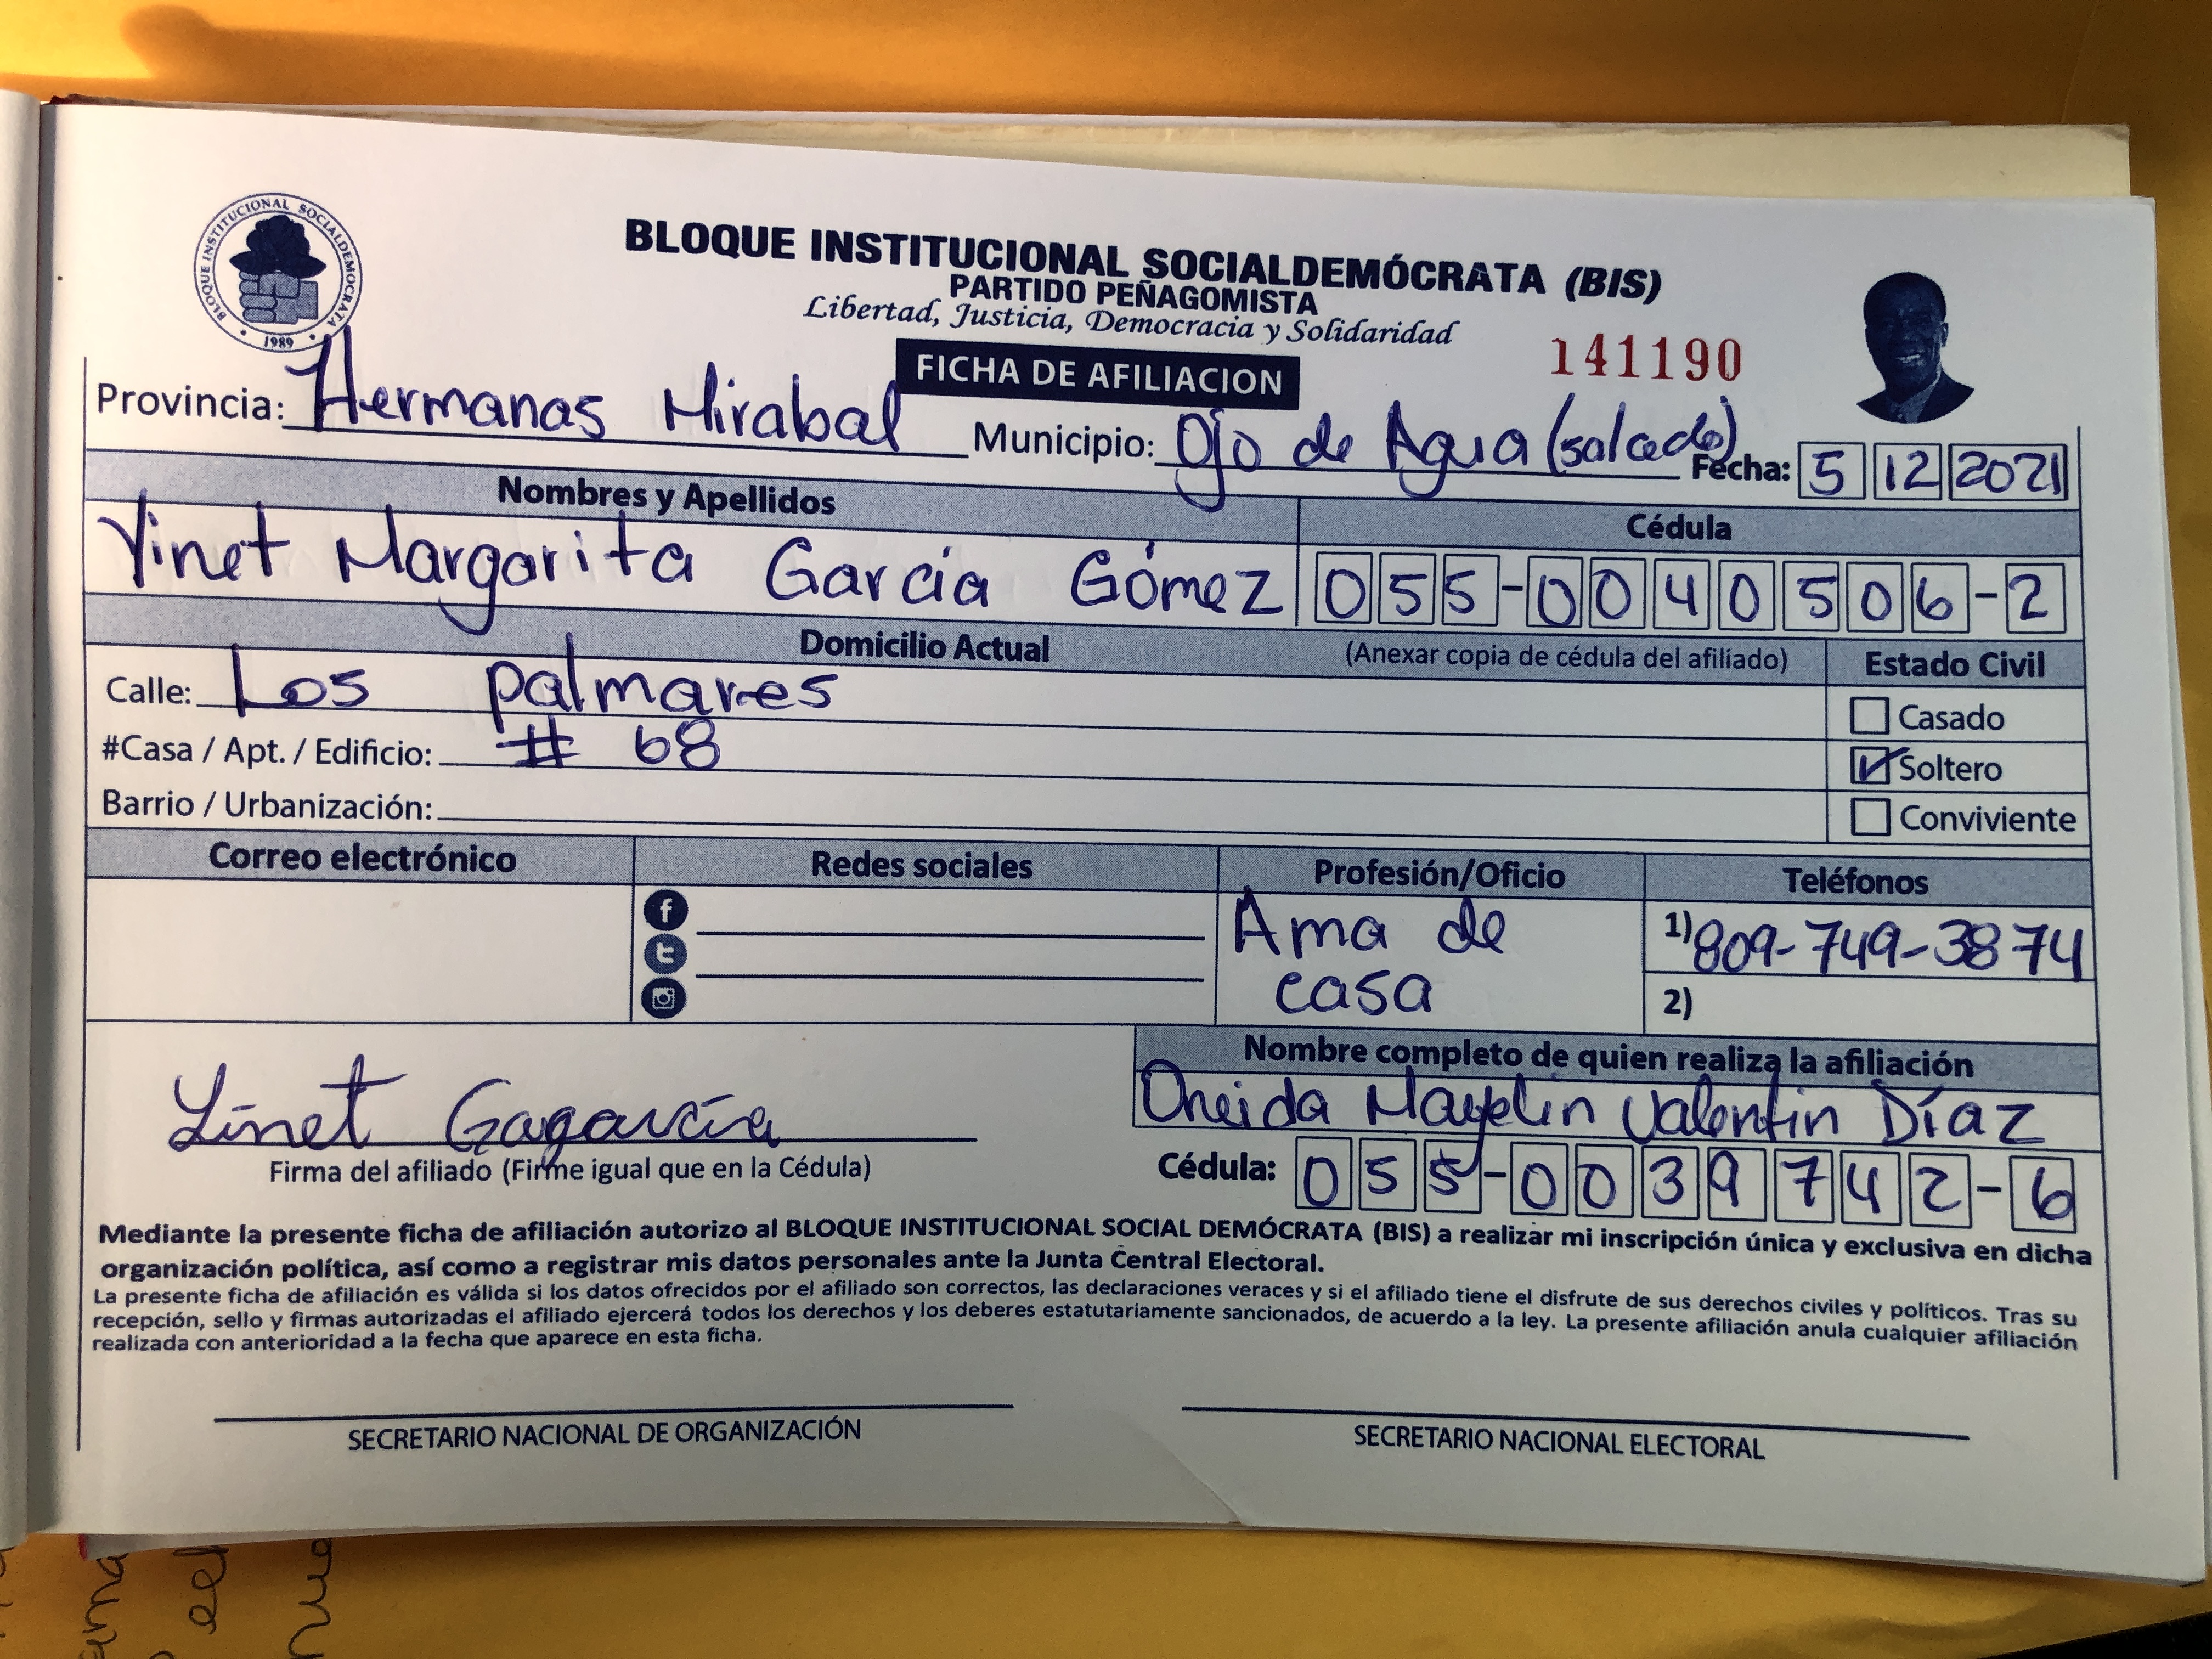 BLOQUE INSTITUCIONAL SOCIALDEMOCRATA
1989
BLOQUE INSTITUCIONAL SOCIALDEMÓCRATA (BIS)
PARTIDO PEÑAGOMISTA
Libertad, Justicia, Democracia y Solidaridad
FICHA DE AFILIACION
141190
Provincia: Hermanas Mirabal Municipio: Ojo de Agua (salcedo) Fecha: 5 12 2021
Nombres y Apellidos Cédula
Yinet Margarita García Gómez 055-0040506-2
Domicilio Actual (Anexar copia de cédula del afiliado) Estado Civil
Calle: Los palmares Casado
#Casa / Apt. / Edificio: # 68 Soltero
Barrio / Urbanización: Conviviente
Correo electrónico Redes sociales Profesión/Oficio Teléfonos
Ama de casa
1) 809-749-3874
2)
Nombre completo de quien realiza la afiliación
Oneida Mayelin Valentin Díaz
Yinet Gagarcía
Firma del afiliado (Firme igual que en la Cédula) Cédula: 055-0039742-6
Mediante la presente ficha de afiliación autorizo al BLOQUE INSTITUCIONAL SOCIAL DEMÓCRATA (BIS) a realizar mi inscripción única y exclusiva en dicha
organización política, así como a registrar mis datos personales ante la Junta Central Electoral.
La presente ficha de afiliación es válida si los datos ofrecidos por el afiliado son correctos, las declaraciones veraces y si el afiliado tiene el disfrute de sus derechos civiles y políticos. Tras su
recepción, sello y firmas autorizadas el afiliado ejercerá todos los derechos y los deberes estatutariamente sancionados, de acuerdo a la ley. La presente afiliación anula cualquier afiliación
realizada con anterioridad a la fecha que aparece en esta ficha.
SECRETARIO NACIONAL DE ORGANIZACIÓN SECRETARIO NACIONAL ELECTORAL